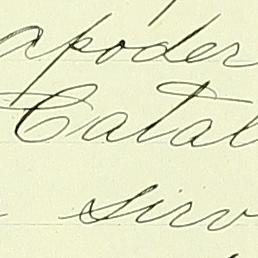 apoder
Catal
sirv